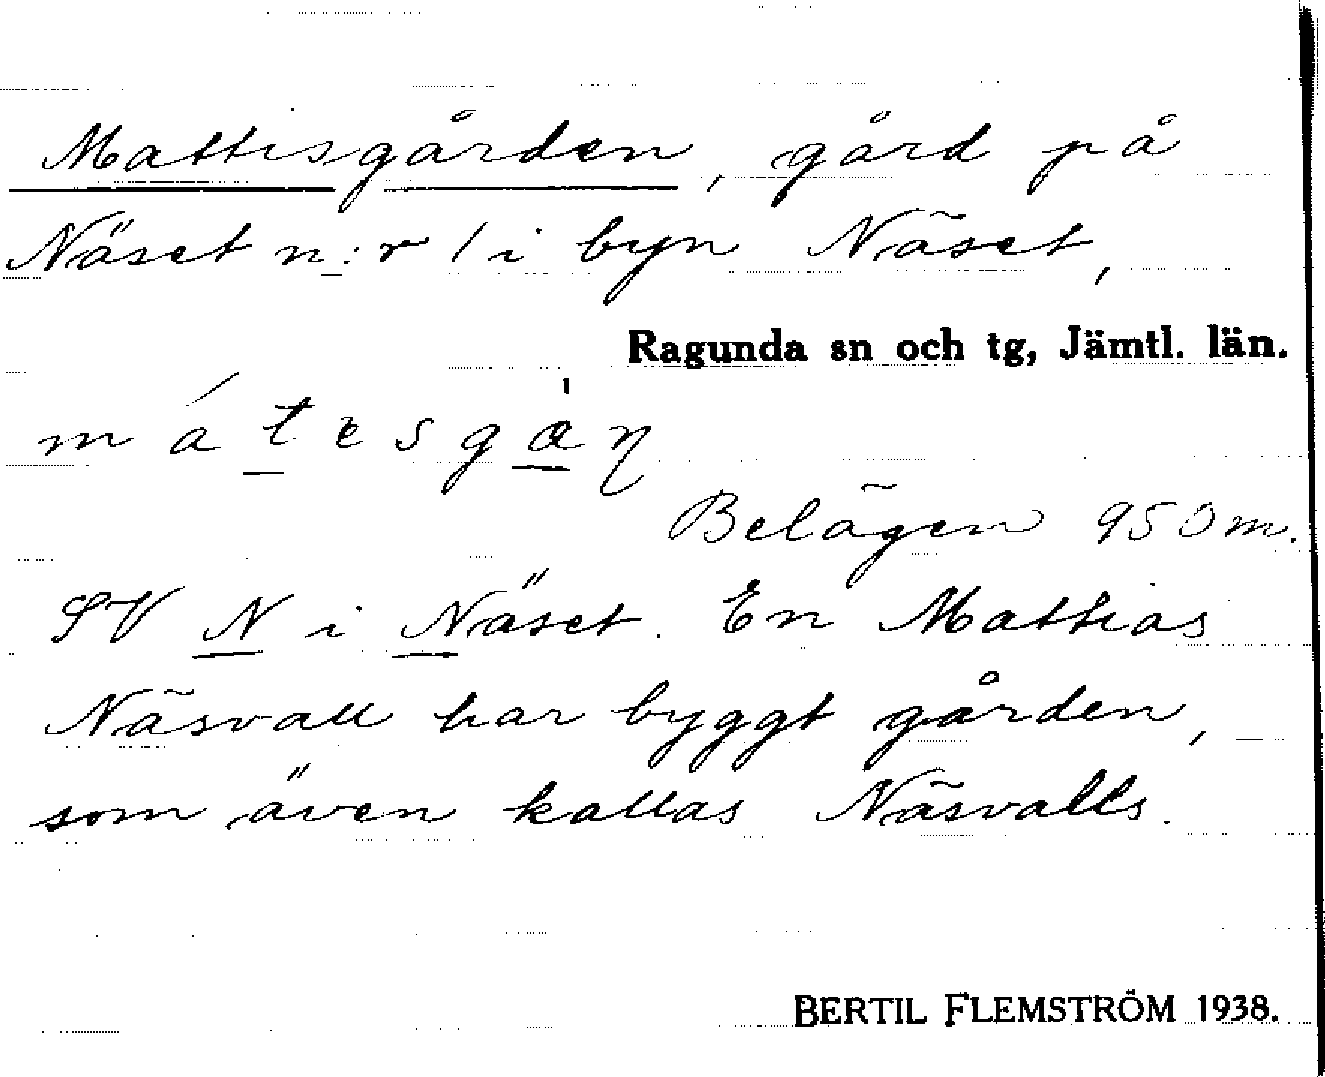 Mattisgården, gård på
Näset n:r 1 i byn Näset,
Ragunda sn och tg, Jämtl. län.
Belägen 950 m.
SV N i Näset. En Mathias
Näsvall har byggt gården,
som även kallas Näsvalls.
BERTIL FLEMSTRÖM 1938.